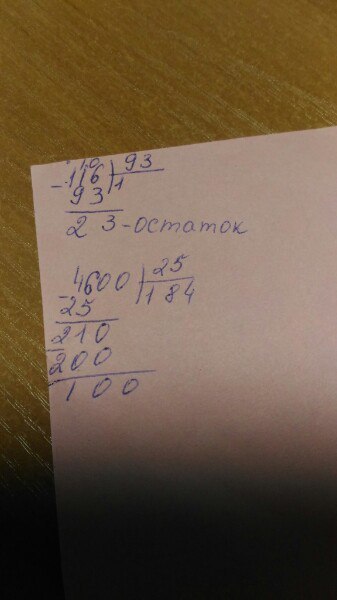 10
-116|93
93|1
23-остаток
-4600|25
25|184
-210
200
100